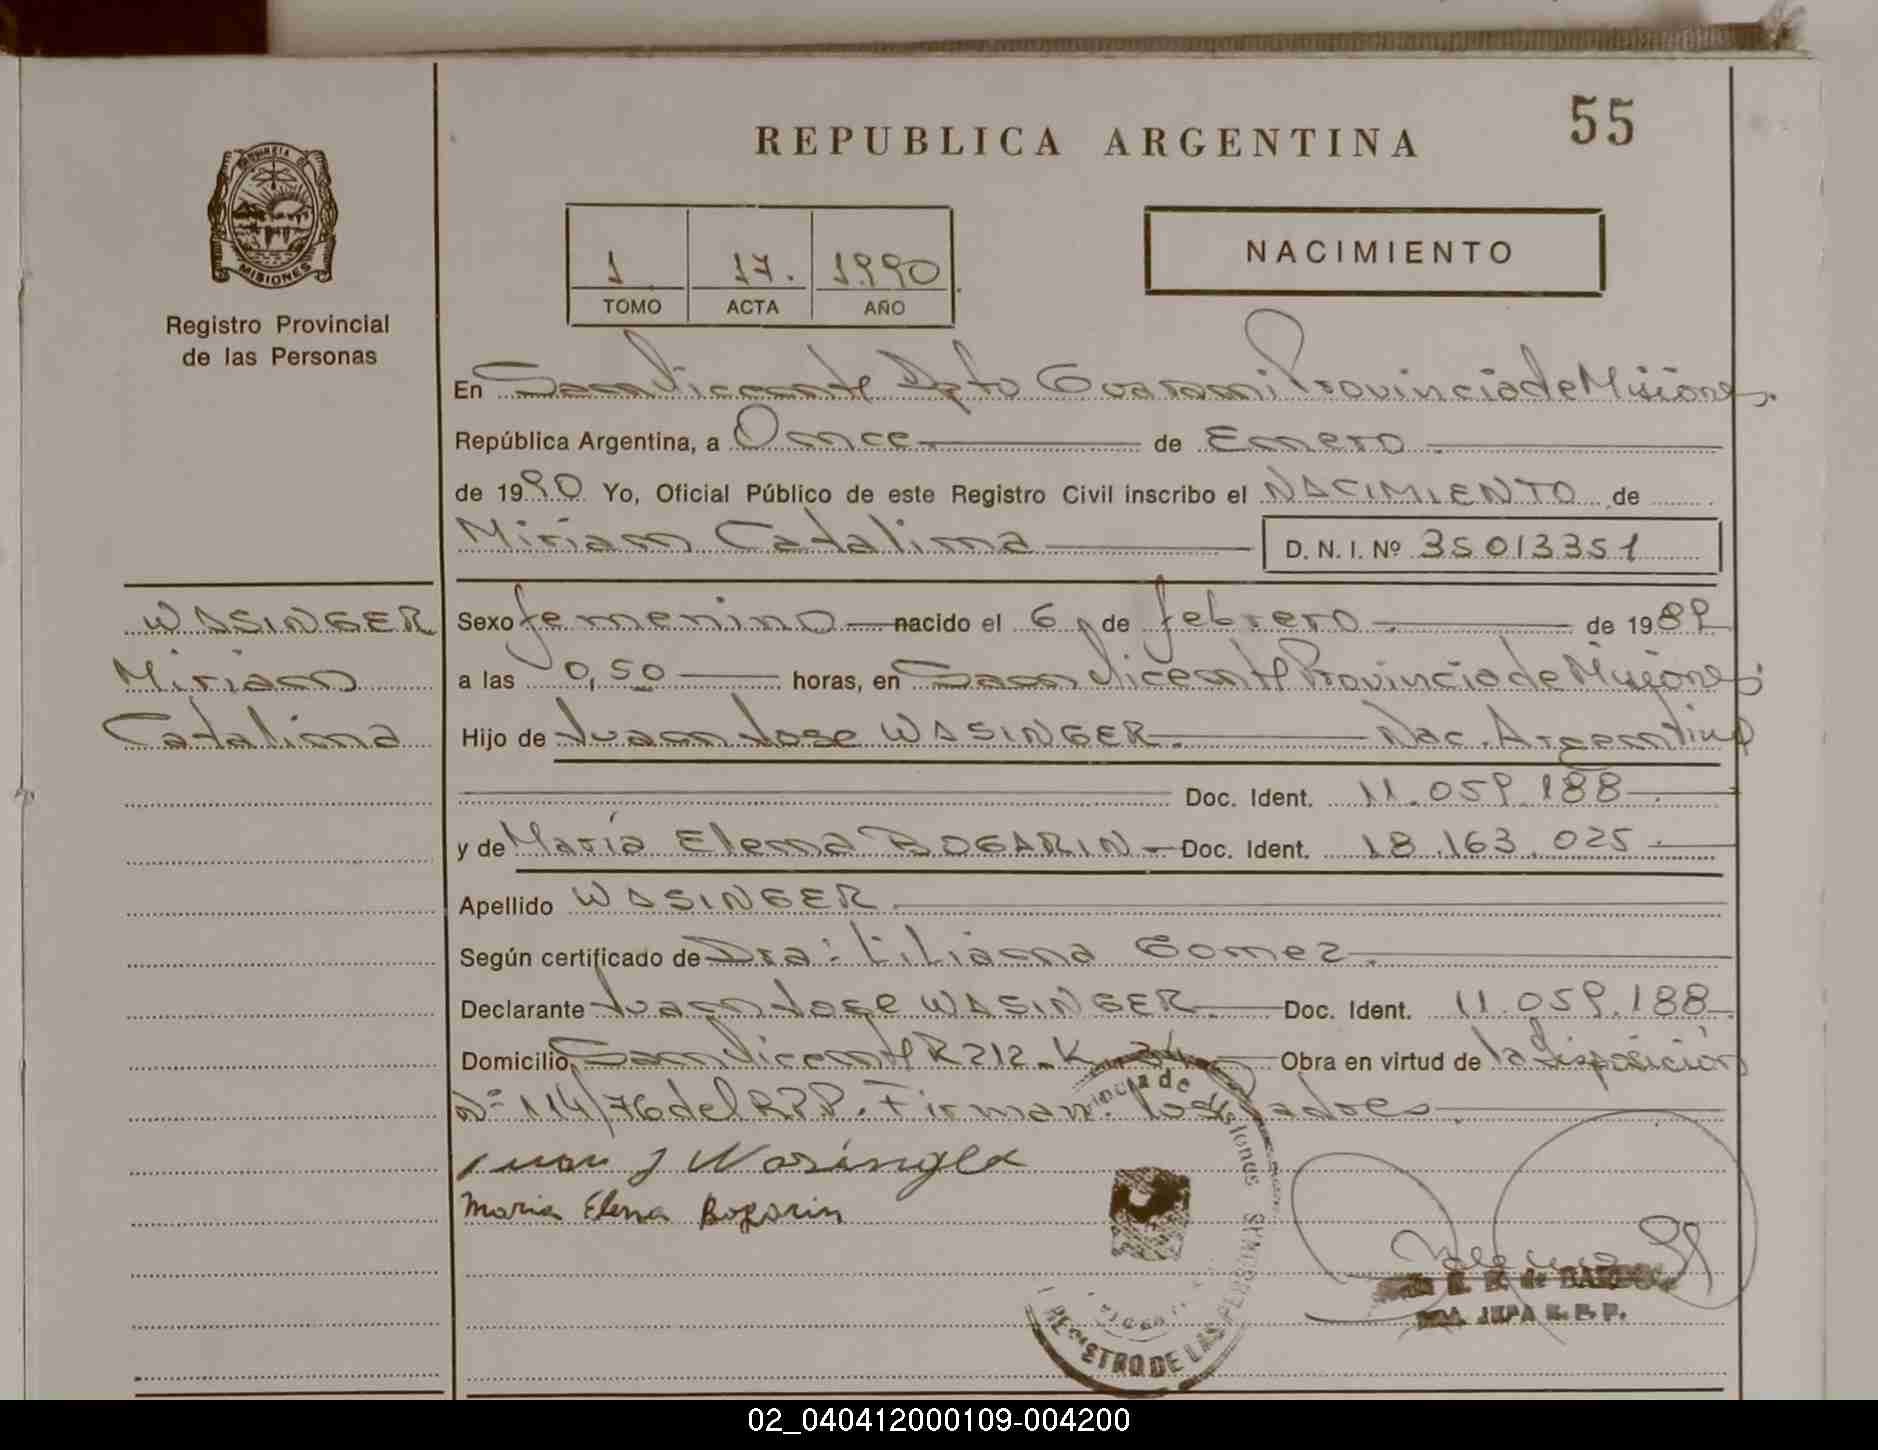 55
REPUBLICA ARGENTINA
PROVINCIA DE
MISIONES
Registro Provincial
de las Personas
1 17. 1990
TOMO ACTA AÑO
NACIMIENTO
En San Vicente Dpto Guarani Provincia de Misiones.
República Argentina, a Once de Enero
de 1990 Yo, Oficial Público de este Registro Civil inscribo el NACIMIENTO de
Miriam Catalina D. N. I. Nº 35013351
WASINGER
Miriam
Catalina
Sexo femenino nacido el 6 de febrero de 1989
a las 0,50 horas, en San Vicente Provincia de Misiones
Hijo de Juan Jose WASINGER. Nac. Argentina
Doc. Ident. 11.059.188
y de María Elena BOGARIN Doc. Ident. 18.163.025
Apellido WASINGER
Según certificado de Dra: Liliana Gomez
Declarante Juan Jose WASINGER. Doc. Ident. 11.059.188
Domicilio San Vicente R 212 K 34 Obra en virtud de la Disposición
Nº 114/76 del R.P.P. Firman: los Padres
Juan J Wasinger
Maria Elena Bogarin
Provincia de Misiones
REGISTRO DE LAS PERSONAS
02_040412000109-004200